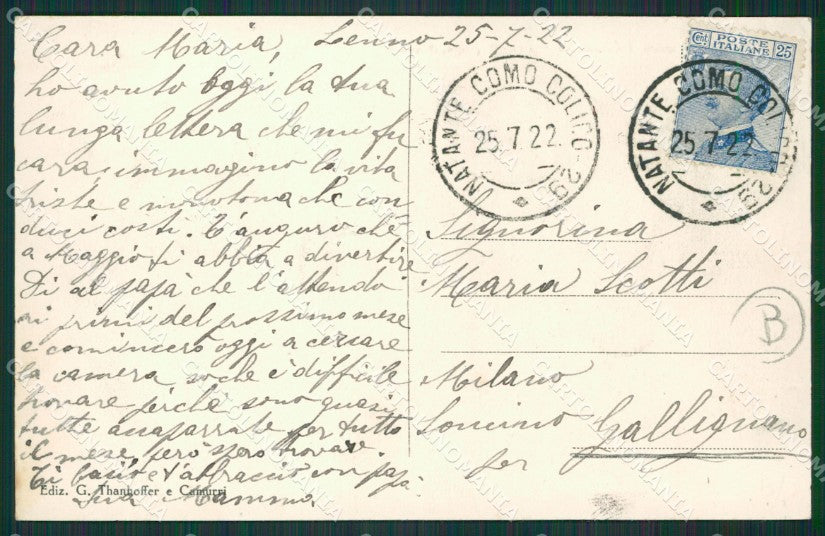 Cara Maria, Lenno 25-7-22
ho avuto oggi la tua
lunga lettera che mi fu
cara, immagino la vita
triste e monotona che con
duci costì. T'auguro che
a Maggio ti abbia a divertire
Di al papà che l'attendo
ai primi del prossimo mese
e comincerò oggi a cercare
la camera, so che è difficile
trovare perchè sono quasi
tutte accaparrate per tutto
il mese, però spero trovare.
Ti bacio e t'abbraccio con papà
tua Mamma.
Ediz. G. Thanhoffer e Camurri
NATANTE COMO COLICO
25.7.22.
POSTE ITALIANE
Cent. 25
NATANTE COMO COLICO
25.7.22
Signorina
Maria Scotti
Milano
Soncino
per Gallignano
B
CARTOLINOMANIA